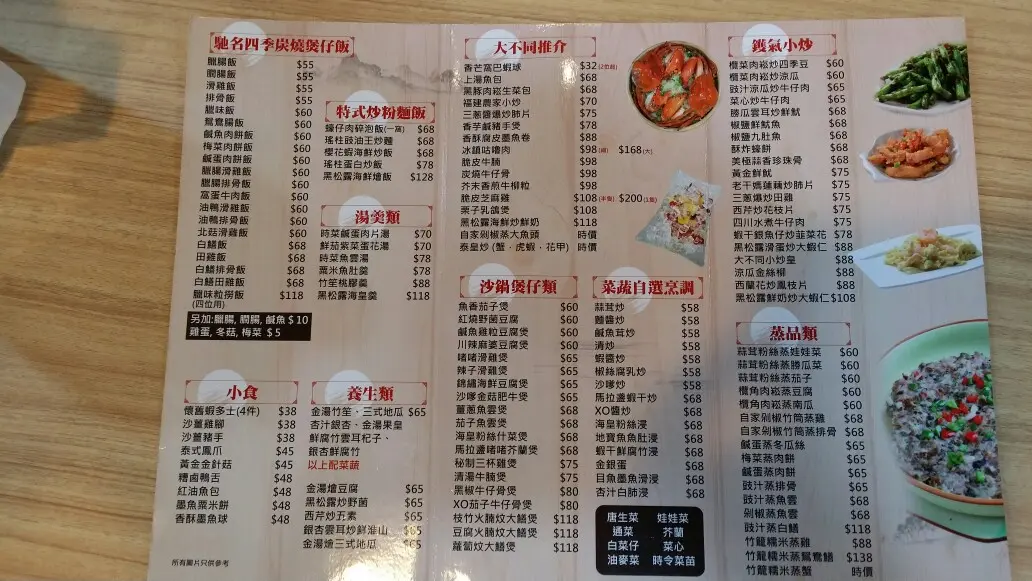 馳名四季炭燒煲仔飯
臘腸飯 $55
膶腸飯 $55
滑雞飯 $55
排骨飯 $55
臘味飯 $60
鴛鴦腸飯 $60
鹹魚肉餅飯 $60
梅菜肉餅飯 $60
鹹蛋肉餅飯 $60
臘腸滑雞飯 $60
臘腸排骨飯 $60
窩蛋牛肉飯 $60
油鴨滑雞飯 $60
油鴨排骨飯 $60
北菇滑雞飯 $60
白鱔飯 $68
田雞飯 $68
白鱔排骨飯 $68
白鱔田雞飯 $68
臘味粒撈飯 $118
(四位用)
另加:臘腸, 膶腸, 鹹魚 $10
雞蛋, 冬菇, 梅菜 $5
特式炒粉麵飯
蠔仔肉碎泡飯(一窩) $68
瑤柱豉油王炒麵 $68
櫻花蝦海鮮炒飯 $68
瑤柱蛋白炒飯 $78
黑松露海鮮燴飯 $128
湯羹類
時菜鹹蛋肉片湯 $70
鮮茄紫菜蛋花湯 $70
時菜魚雲湯 $78
粟米魚肚羹 $78
竹笙桃膠羹 $88
黑松露海皇羹 $118
小食
懷舊蝦多士(4件) $38
沙薑雞腳 $38
沙薑豬手 $38
泰式鳳爪 $45
黃金金針菇 $45
糟鹵鴨舌 $48
紅油魚包 $48
墨魚粟米餅 $48
香酥墨魚球 $48
所有圖片只供參考
養生類
金湯竹笙、三式地瓜 $65
杏汁銀杏、金湯果皇
鮮腐竹雲耳杞子、
銀杏鮮腐竹
以上配菜蔬
金湯燴豆腐 $65
黑松露炒野菌 $65
西芹炒五素 $65
銀杏雲耳炒鮮淮山 $65
金湯燴三式地瓜 $65
大不同推介
香芒窩巴蝦球 $32(2位起)
上湯魚包 $68
黑豚肉崧生菜包 $68
福建農家小炒 $70
三蔥醬爆炒肺片 $75
香芋鹹豬手煲 $78
香酥腐皮墨魚卷 $88
冰鎮咕嚕肉 $98(細) $168(大)
脆皮牛腩 $98
炭燒牛仔骨 $98
芥末香煎牛柳粒 $98
脆皮芝麻雞 $108(半隻) $200(1隻)
栗子乳鴿煲 $108
黑松露海鮮炒鮮奶 $118
自家剁椒蒸大魚頭 時價
泰皇炒 (蟹．虎蝦．花甲) 時價
沙鍋煲仔類
魚香茄子煲 $60
紅燒野菌豆腐煲 $60
鹹魚雞粒豆腐煲 $60
川辣麻婆豆腐煲 $60
啫啫滑雞煲 $65
辣子滑雞煲 $65
錦繡海鮮豆腐煲 $65
沙嗲金菇肥牛煲 $65
薑蔥魚雲煲 $68
茄子魚雲煲 $68
海皇粉絲什菜煲 $68
馬拉盞啫啫芥蘭煲 $68
秘制三杯雞煲 $75
清湯牛腩煲 $75
黑椒牛仔骨煲 $80
XO茄子牛仔骨煲 $80
枝竹火腩炆大鱔煲 $118
豆腐火腩炆大鱔煲 $118
蘿蔔炆大鱔煲 $118
菜蔬自選烹調
蒜茸炒 $58
麵醬炒 $58
鹹魚茸炒 $58
清炒 $58
蝦醬炒 $58
椒絲腐乳炒 $58
沙嗲炒 $58
馬拉盞蝦干炒 $68
XO醬炒 $68
海皇粉絲浸 $68
地寶魚魚肚浸 $68
蝦干鮮腐竹浸 $68
金銀蛋 $68
目魚墨魚滑浸 $68
杏汁白肺浸 $68
唐生菜 娃娃菜
通菜 芥蘭
白菜仔 菜心
油麥菜 時令菜苗
鑊氣小炒
欖菜肉崧炒四季豆 $60
欖菜肉崧炒涼瓜 $60
豉汁涼瓜炒牛仔肉 $65
菜心炒牛仔肉 $65
勝瓜雲耳炒鮮魷 $68
椒鹽鮮魷魚 $68
椒鹽九肚魚 $68
酥炸蠔餅 $68
美極蒜香珍珠骨 $68
黃金鮮魷 $75
老干媽蓮藕炒肺片 $75
三蔥爆炒田雞 $75
西芹炒花枝片 $75
四川水煮牛仔肉 $75
蝦干銀魚仔炒韮菜花 $78
黑松露滑蛋炒大蝦仁 $88
大不同小炒皇 $88
涼瓜金絲柳 $88
西蘭花炒鳳枝片 $88
黑松露鮮奶炒大蝦仁 $108
蒸品類
蒜茸粉絲蒸娃娃菜 $60
蒜茸粉絲蒸勝瓜菜 $60
蒜茸粉絲蒸茄子 $60
欖角肉崧蒸豆腐 $60
欖角肉崧蒸南瓜 $60
自家剁椒竹筒蒸雞 $68
自家剁椒竹筒蒸排骨 $68
鹹蛋蒸冬瓜絲 $65
梅菜蒸肉餅 $65
鹹蛋蒸肉餅 $65
豉汁蒸排骨 $65
豉汁蒸魚雲 $68
剁椒蒸魚雲 $68
豉汁蒸白鱔 $118
竹籠糯米蒸雞 $88
竹籠糯米蒸鴛鴦鱔 $138
竹籠糯米蒸蟹 時價